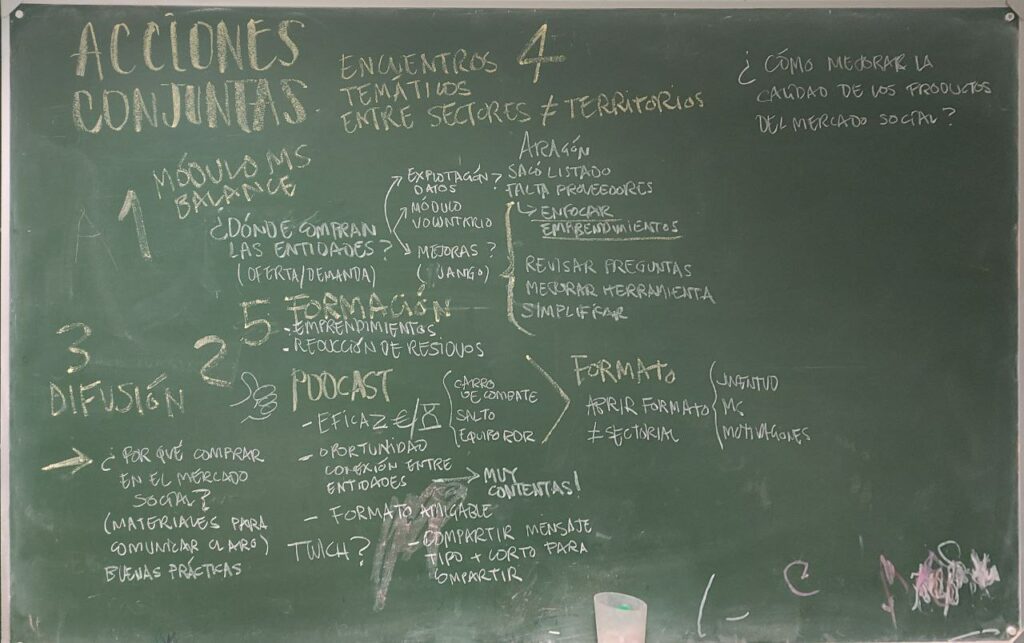 ACCIONES
CONJUNTAS
ENCUENTROS 4
TEMÁTICOS
ENTRE SECTORES ≠ TERRITORIOS
¿CÓMO MEJORAR LA
CALIDAD DE LOS PRODUCTOS
DEL MERCADO SOCIAL?
A 1
MÓDULO MS
BALANCE
¿DÓNDE COMPRAN
LAS ENTIDADES?
(OFERTA/DEMANDA)
EXPLOTACIÓN?
DATOS
MÓDULO
VOLUNTARIO
MEJORAS?
(JANGO)
ARAGÓN
SACÓ LISTADO
FALTA PROVEEDORES
ENFOCAR
EMPRENDIMIENTOS
REVISAR PREGUNTAS
MEJORAR HERRAMIENTA
SIMPLIFICAR
5 FORMACIÓN
- EMPRENDIMIENTOS
- REDUCCIÓN DE RESIDUOS
3
DIFUSIÓN
¿POR QUÉ COMPRAR
EN EL MERCADO
SOCIAL?
(MATERIALES PARA
COMUNICAR CLARO)
BUENAS PRÁCTICAS
2
PODCAST
- EFICAZ €/
CARRO
DE COMBATE
SALTO
EQUIPO ROR
- OPORTUNIDAD
CONEXIÓN ENTRE
ENTIDADES
MUY
CONTENTAS!
- FORMATO AMIGABLE
TWICH?
- COMPARTIR MENSAJE
TIPO + CORTO PARA
COMPARTIR
FORMATO
ABRIR FORMATO
≠ SECTORIAL
JUVENTUD
MS
MOTIVACIONES